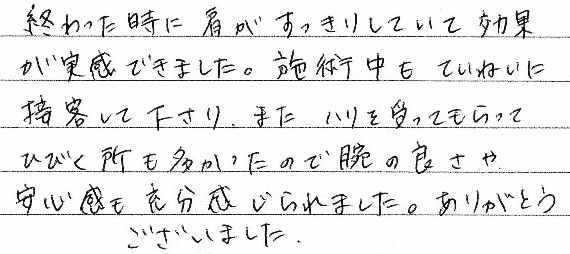 終わった時に肩がすっきりしていて効果
が実感できました。施術中もていねいに
接客して下さり、また ハリを受ってもらって
ひびく所も多かったので腕の良さや
安心感も充分感じられました。ありがとう
ございました.